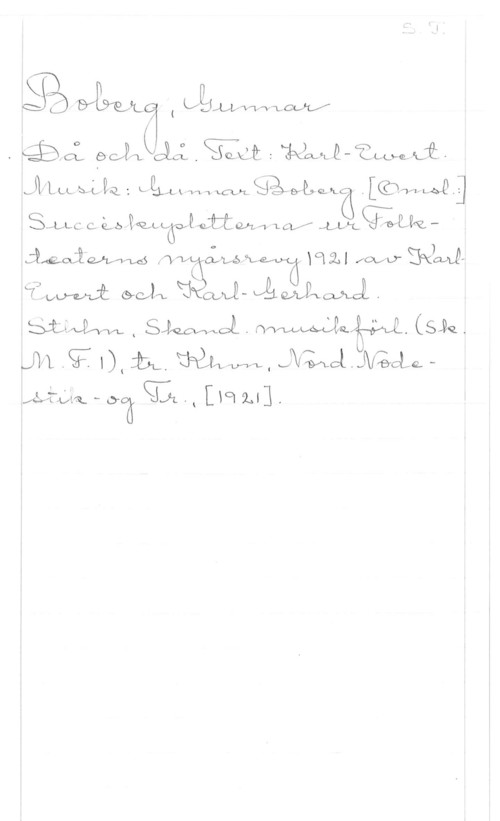 S. T.
Boberg, Gunnar
Då och då. Text: Karl-Ewert.
Musik: Gunnar Boberg. [Omsl.:]
Succéskupletterna ur Folk-
teaterns nyårsrevy 1921 av Karl-
Ewert och Karl-Gerhard.
Sthlm, Skand. musikförl. (Sk.
M. F. 1), tr. Khvn, Nord. Node-
stik- og Tr., [1921].